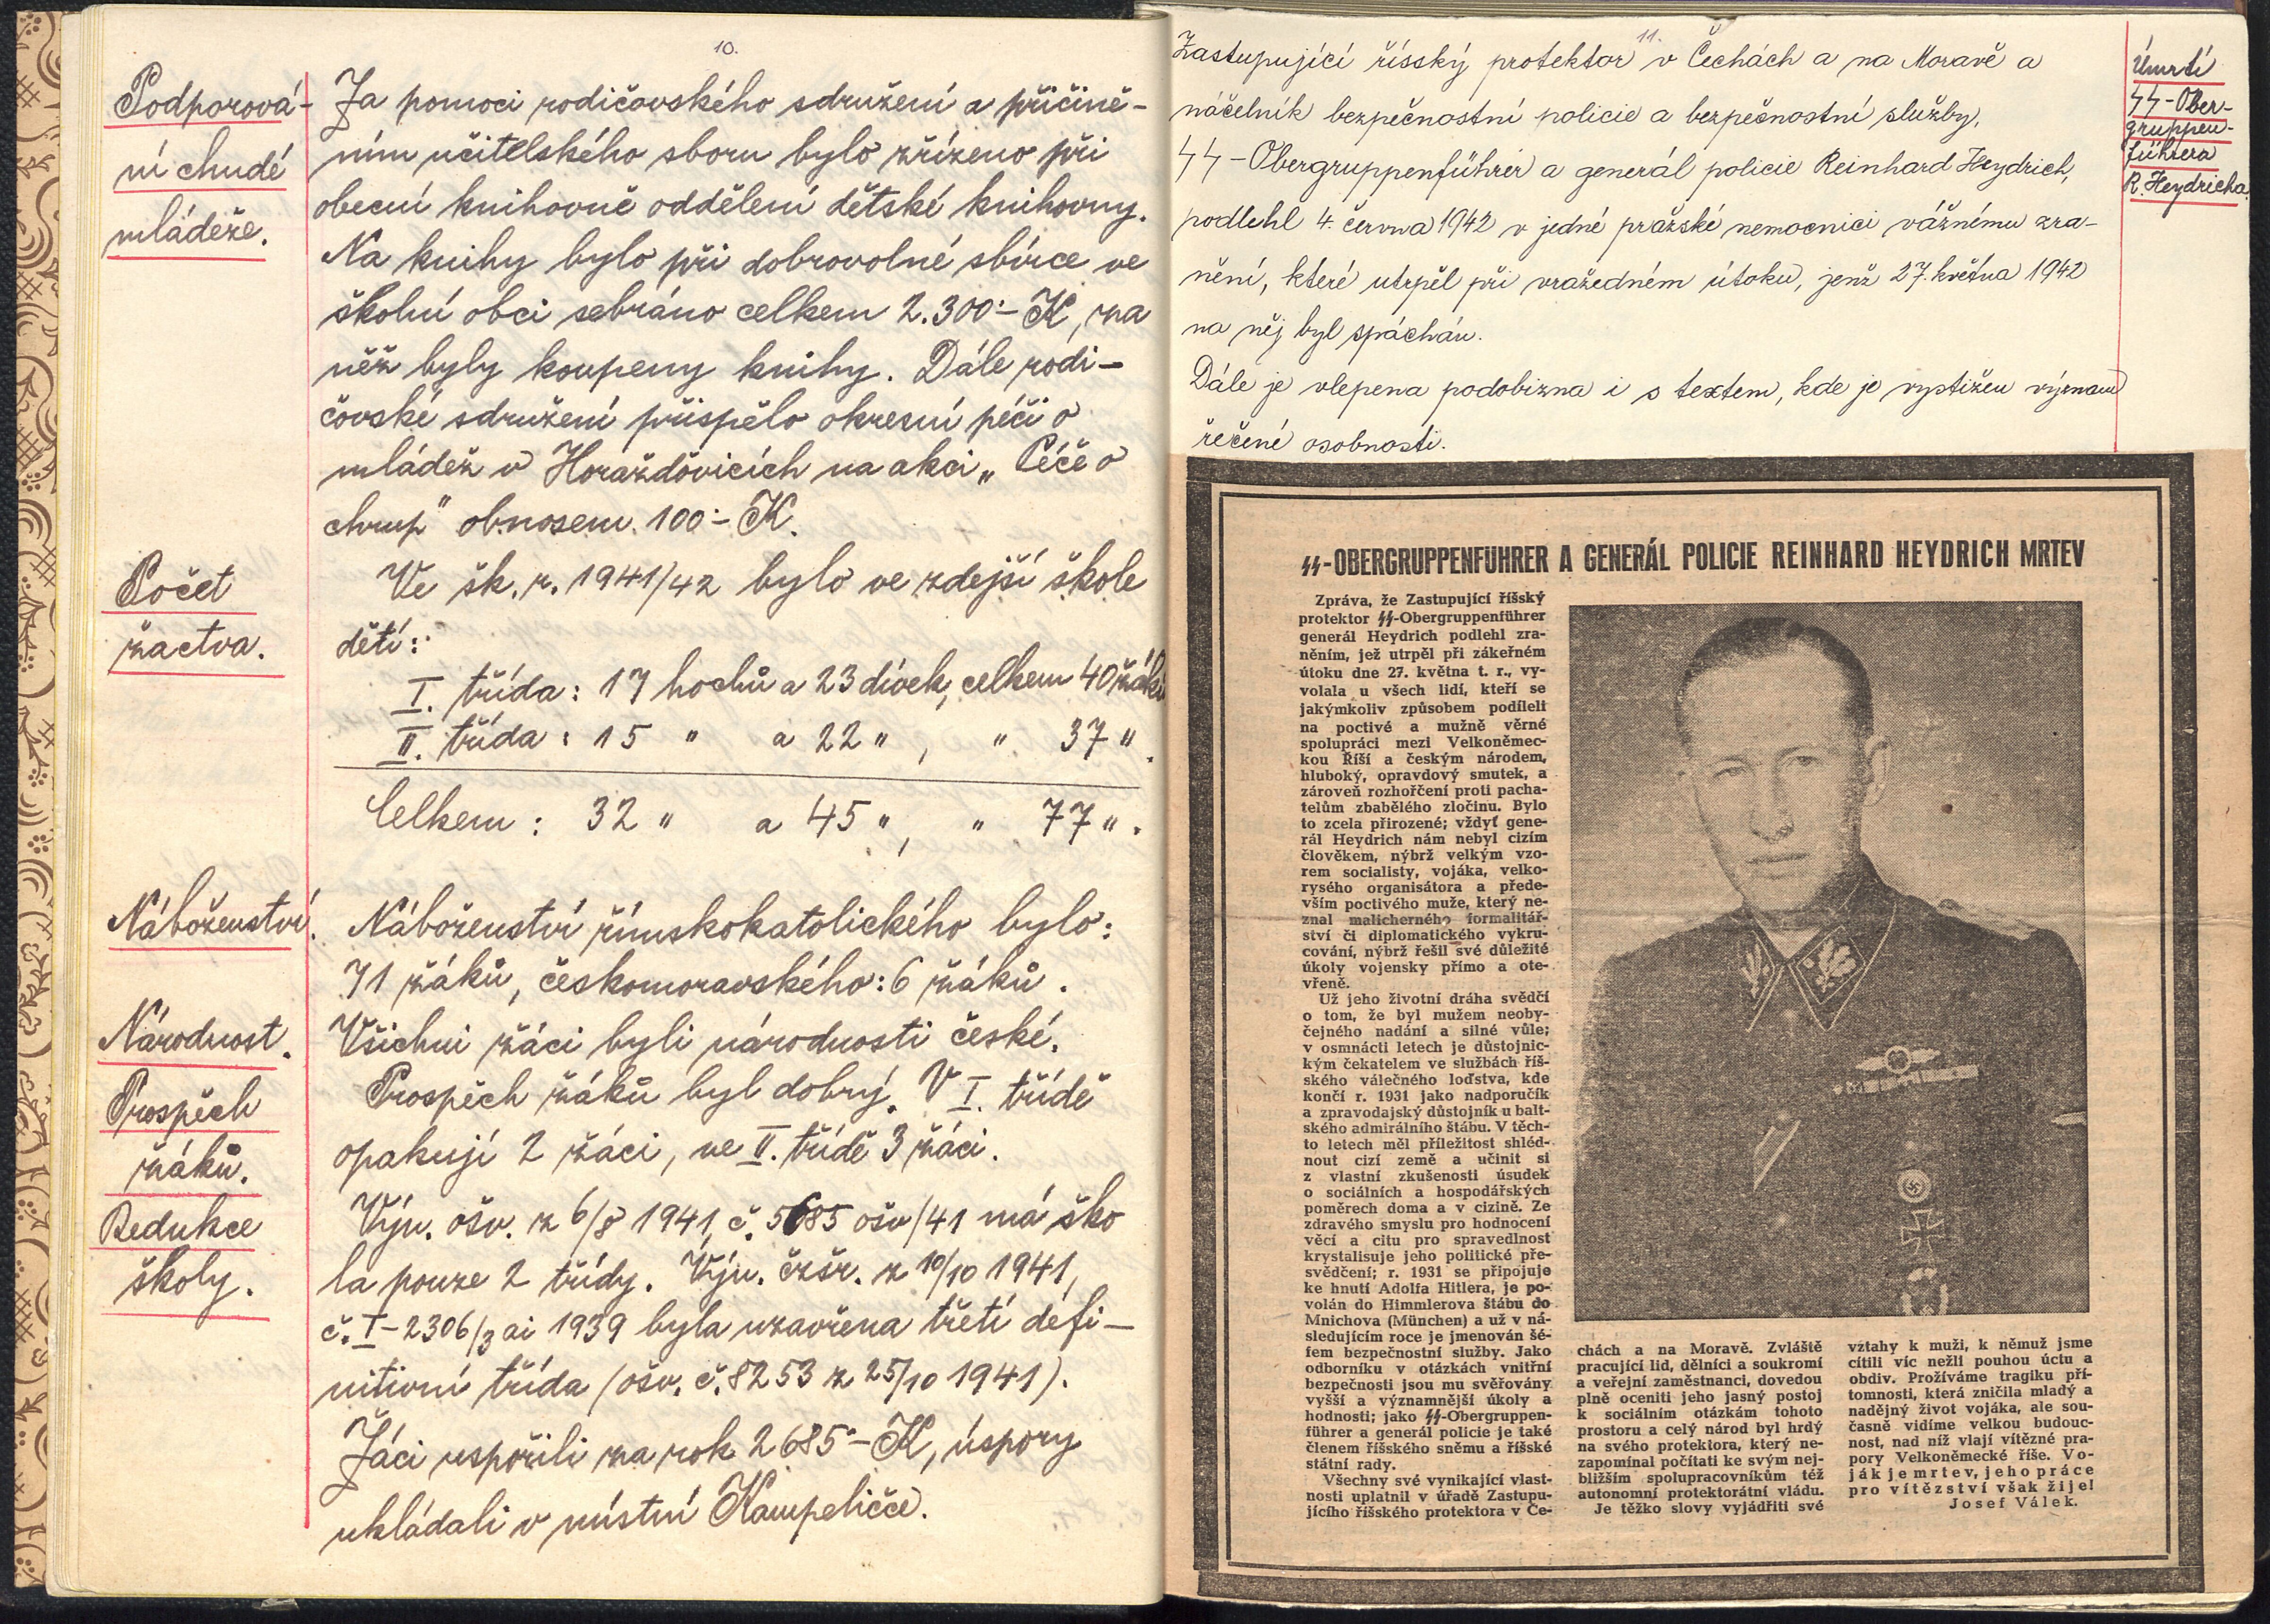 10.
Podporová-
ní chudé
mládeže.
Za pomoci rodičovského sdružení a přičině-
ním učitelského sboru bylo zřízeno při
obecní knihovně oddělení dětské knihovny.
Na knihy bylo při dobrovolné sbírce ve
školní obci sebráno celkem 2.300·- K, za
něž byly koupeny knihy. Dále rodi-
čovské sdružení přispělo okresní péči o
mládež v Horažďovicích na akci „Péče o
chrup" obnosem 100·- K.
Počet
žactva.
Ve šk. r. 1941/42 bylo ve zdejší škole
dětí:
I. třída: 17 hochů a 23 dívek, celkem 40 žáků
II. třída: 15 " a 22 ", " 37 ".
Celkem: 32 " a 45 ", " 77 ".
Náboženství.
Náboženství římskokatolického bylo:
71 žáků, českomoravského: 6 žáků.
Národnost.
Všichni žáci byli národnosti české.
Prospěch
žáků.
Prospěch žáků byl dobrý. V I. třídě
opakují 2 žáci, ve II. třídě 3 žáci.
Redukce
školy.
Výn. ošv. z 6/8 1941, č. 5685 ošv/41 má ško
la pouze 2 třídy. Výn. čzšr. z 10/10 1941,
č. I-2306/3 ai 1939 byla uzavřena třetí defi-
nitivní třída (ošv. č. 8253 z 25/10 1941).
Žáci uspořili za rok 2685·- K, úspory
ukládali v místní Kampeličce.
11.
Zastupující říšský protektor v Čechách a na Moravě a
náčelník bezpečnostní policie a bezpečnostní služby,
SS-Obergruppenführer a generál policie Reinhard Heydrich,
podlehl 4. června 1942 v jedné pražské nemocnici vážnému zra-
nění, které utrpěl při vražedném útoku, jenž 27. května 1942
na něj byl spáchán.
Dále je vlepena podobizna i s textem, kde je vystižen význam
řečené osobnosti.
Úmrtí
SS-Ober-
gruppen-
führera
R. Heydricha.
SS-OBERGRUPPENFÜHRER A GENERÁL POLICIE REINHARD HEYDRICH MRTEV
Zpráva, že Zastupující říšský
protektor SS-Obergruppenführer
generál Heydrich podlehl zra-
něním, jež utrpěl při zákeřném
útoku dne 27. května t. r., vy-
volala u všech lidí, kteří se
jakýmkoliv způsobem podíleli
na poctivé a mužně věrné
spolupráci mezi Velkoněmec-
kou Říší a českým národem,
hluboký, opravdový smutek, a
zároveň rozhořčení proti pacha-
telům zbabělého zločinu. Bylo
to zcela přirozené; vždyť gene-
rál Heydrich nám nebyl cizím
člověkem, nýbrž velkým vzo-
rem socialisty, vojáka, velko-
rysého organisátora a přede-
vším poctivého muže, který ne-
znal malicherného formalitář-
ství či diplomatického vykru-
cování, nýbrž řešil své důležité
úkoly vojensky přímo a ote-
vřeně.
Už jeho životní dráha svědčí
o tom, že byl mužem neoby-
čejného nadání a silné vůle;
v osmnácti letech je důstojnic-
kým čekatelem ve službách říš-
ského válečného loďstva, kde
končí r. 1931 jako nadporučík
a zpravodajský důstojník u balt-
ského admirálního štábu. V těch-
to letech měl příležitost shléd-
nout cizí země a učinit si
z vlastní zkušenosti úsudek
o sociálních a hospodářských
poměrech doma a v cizině. Ze
zdravého smyslu pro hodnocení
věcí a citu pro spravedlnost
krystalisuje jeho politické pře-
svědčení; r. 1931 se připojuje
ke hnutí Adolfa Hitlera, je po-
volán do Himmlerova štábu do
Mnichova (München) a už v ná-
sledujícím roce je jmenován šé-
fem bezpečnostní služby. Jako
odborníku v otázkách vnitřní
bezpečnosti jsou mu svěřovány
vyšší a významnější úkoly a
hodnosti; jako SS-Obergruppen-
führer a generál policie je také
členem říšského sněmu a říšské
státní rady.
Všechny své vynikající vlast-
nosti uplatnil v úřadě Zastupu-
jícího říšského protektora v Če-
chách a na Moravě. Zvláště
pracující lid, dělníci a soukromí
a veřejní zaměstnanci, dovedou
plně oceniti jeho jasný postoj
k sociálním otázkám tohoto
prostoru a celý národ byl hrdý
na svého protektora, který ne-
zapomínal počítati ke svým nej-
bližším spolupracovníkům též
autonomní protektorátní vládu.
Je těžko slovy vyjádřiti své
vztahy k muži, k němuž jsme
cítili víc nežli pouhou úctu a
obdiv. Prožíváme tragiku pří-
tomnosti, která zničila mladý a
nadějný život vojáka, ale sou-
časně vidíme velkou budouc-
nost, nad níž vlají vítězné pra-
pory Velkoněmecké říše. Vo-
ják je mrtev, jeho práce
pro vítězství však žije!
Josef Válek.